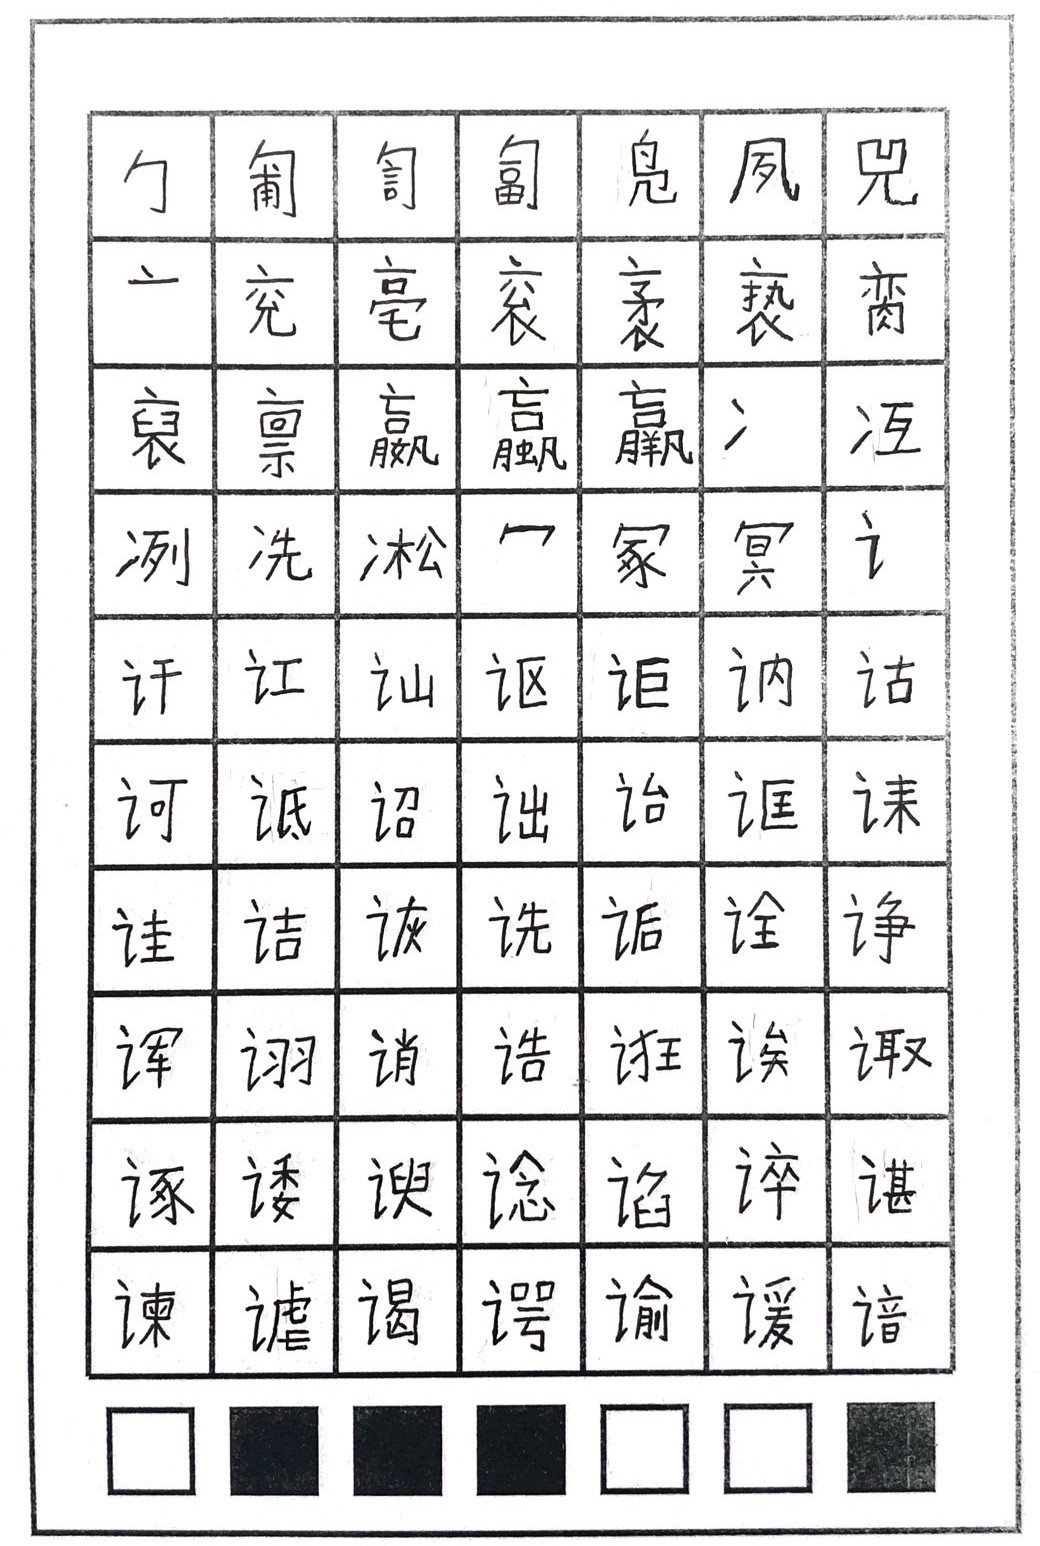 勹 匍 訇 匐 凫 夙 兕
亠 兖 亳 衮 袤 亵 脔
裒 禀 嬴 蠃 羸 冫 冱
冽 冼 凇 冖 冢 冥 讠
讦 讧 讪 讴 讵 讷 诂
诃 诋 诏 诎 诒 诓 诔
诖 诘 诙 诜 诟 诠 诤
诨 诩 诮 诰 诳 诶 诹
诼 诿 谀 谂 谄 谇 谌
谏 谑 谒 谔 谕 谖 谙